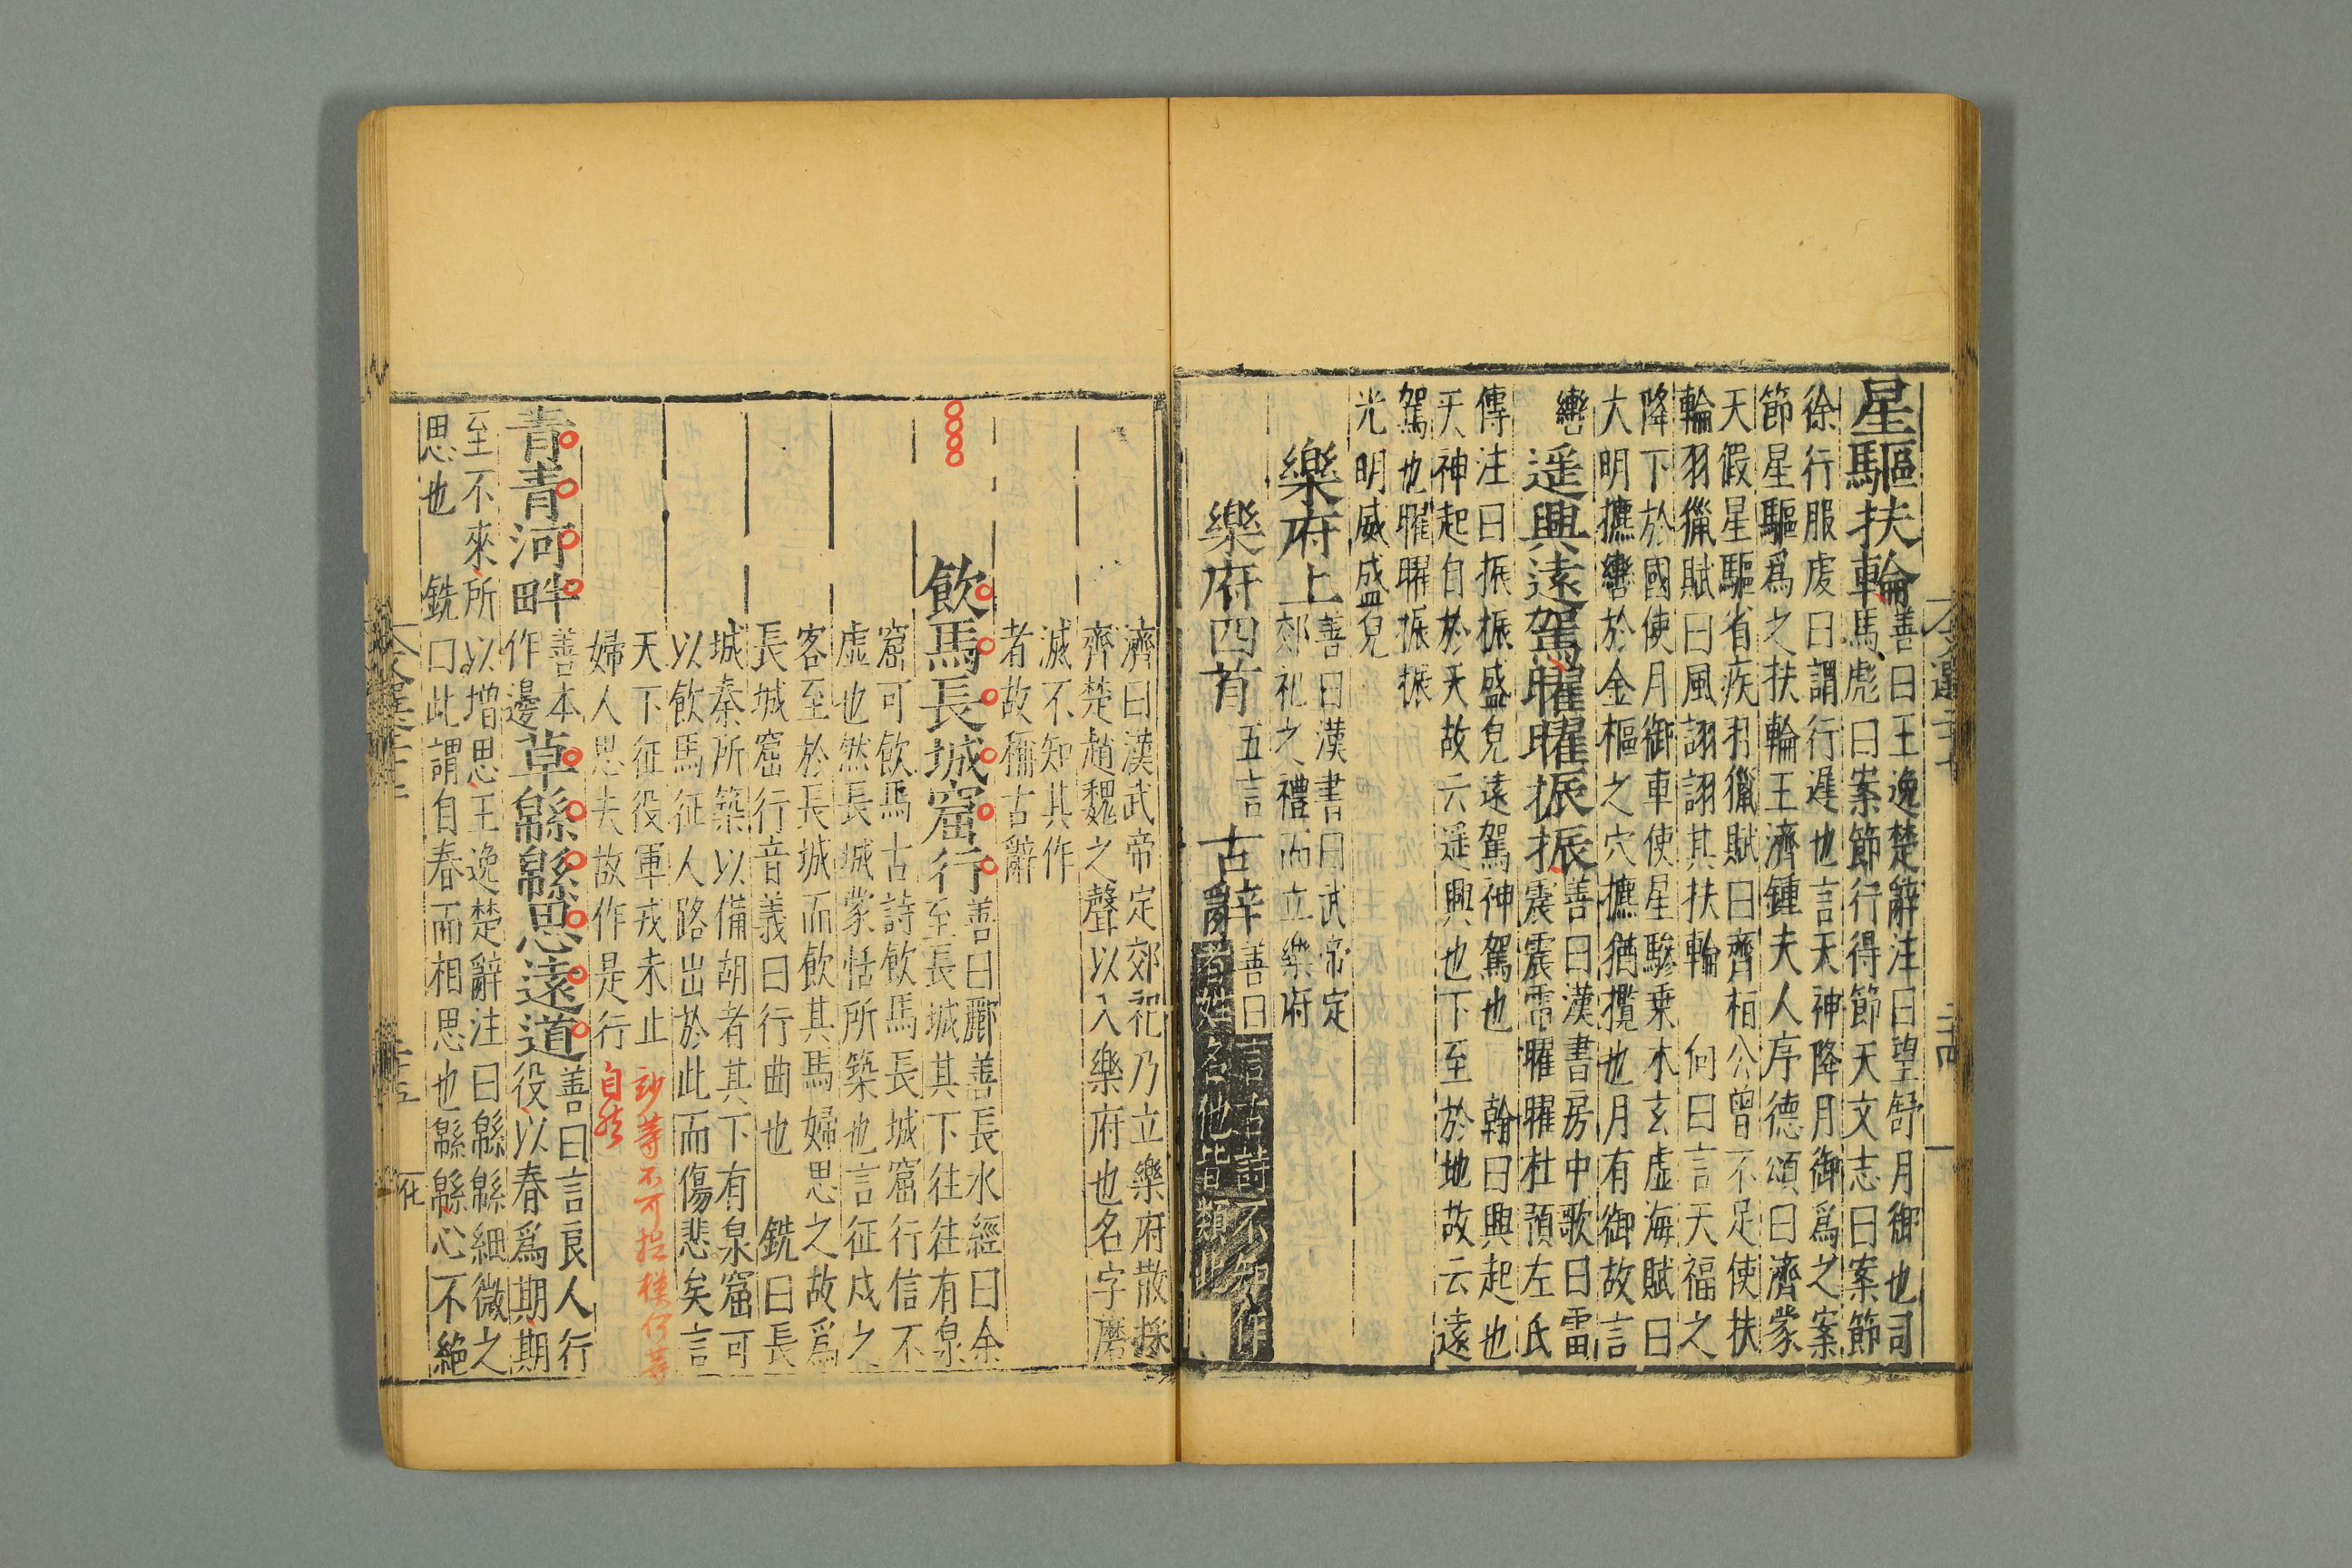 星驅扶輪善曰王逸楚辭注曰望舒月御也司
馬彪曰案節行得節天文志曰案節
徐行服虔曰謂行遲也言天神降月御爲之案
節星驅爲之扶輪王濟鍾夫人序德頌曰濟蒙
天假星驅省疾羽獵賦曰齊桓公曾不足使扶
輪羽獵賦曰風詡詡其扶輪 向曰言天福之
降下於國使月御車使星驂乗木玄虚海賦曰
大明攠轡於金樞之穴攠猶攬也月有御故言
轡
遥興遠駕曜曜振振善曰漢書房中歌曰雷
震震電曜曜杜預左氏
傳注曰振振盛皃遠駕神駕也 翰曰興起也
天神起自於天故云遥興也下至於地故云遠
駕也曜曜振振
光明威盛皃
樂府上善曰漢書曰武帝定
郊祀之禮而立樂府
樂府四首五言 古辭善曰言古詩不知作
者姓名他皆類此
文選二十七
二十四
濟曰漢武帝定郊祀乃立樂府散採
齊楚趙魏之聲以入樂府也名字磨
滅不知其作
者故稱古辭
飲馬長城窟行善曰酈善長水經曰余
至長城其下往往有泉
窟可飲馬古詩飲馬長城窟行信不
虚也然長城蒙恬所築也言征戍之
客至於長城而飲其馬婦思之故爲
長城窟行音義曰行曲也 銑曰長
城秦所築以備胡者其下有泉窟可
以飲馬征人路出於此而傷悲矣言
天下征役軍戎未止
婦人思夫故作是行
妙莫不可捉摸
自然
青青河畔善本
作邊草緜緜思遠道善曰言良人行
役以春爲期期
至不來所以增思王逸楚辭注曰緜緜細微之
思也 銑曰此謂自春而相思也緜緜心不絶